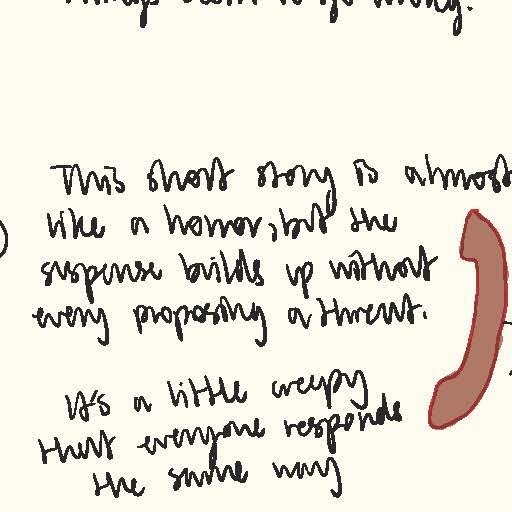 things seem to go wrong.
This short story is almost
like a horror, but the
suspense builds up without
every proposing a threat.
It's a little creepy
that everyone responds
the same way